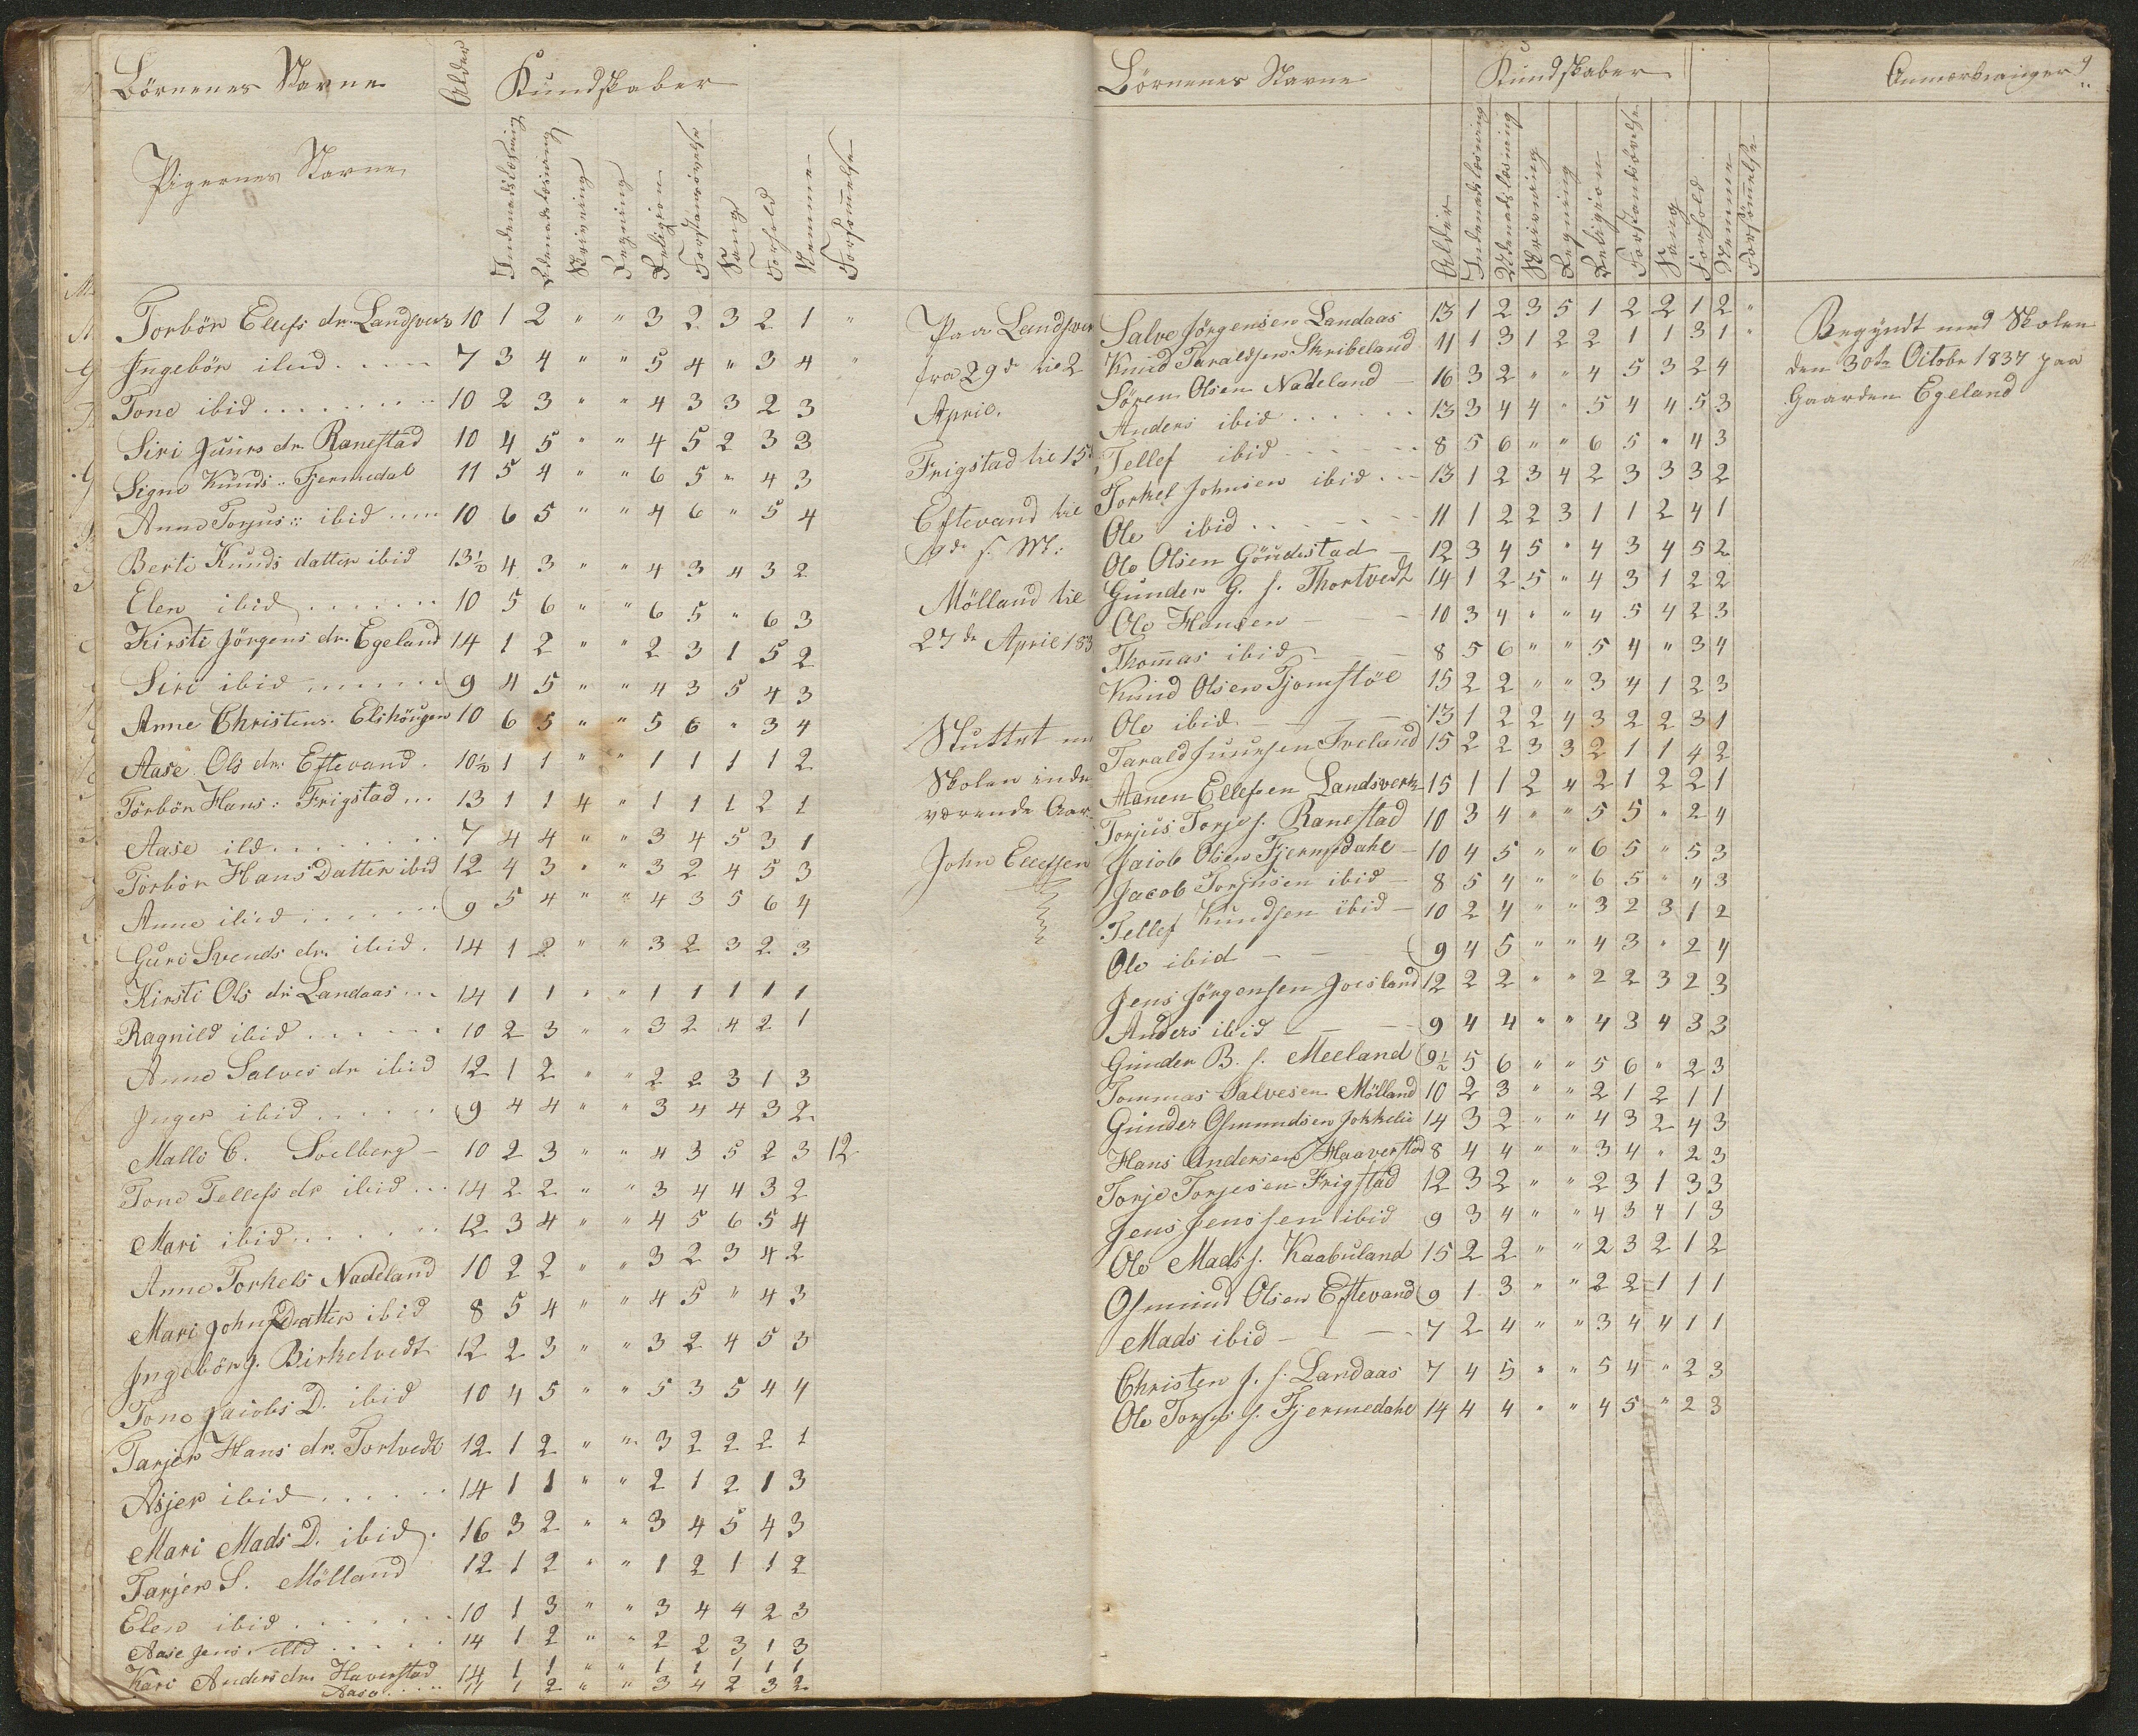 Börnenes Navne Alder Kundskaber
Pigernes Navne Indenadslæsning Udenadslæsning Skrivning Regning Religion Forstandsøvelse Sang Forhold Nemme Forsømmelse
Torbör Ellefs dr. Landsverk 10 1 2 " " 3 2 3 2 1 "
Ingebör ibid 7 3 4 " " 5 4 " 3 4 "
Tone ibid 10 2 3 " " 4 3 3 2 3
Siri Juurs dr. Ranestad 10 4 5 " " 4 5 2 3 3
Signe Knuds " Fjermedal 11 5 4 " " 6 5 " 4 3
Anne Torjus :: ibid 10 6 5 " " 4 6 " 5 4
Berte Knuds datter ibid 13½ 4 3 " " 4 3 4 3 2
Elen ibid 10 5 6 " " 6 5 " 6 3
Kirsti Jörgens dr. Egeland 14 1 2 " " 2 3 1 5 2
Siri ibid 9 4 5 " " 4 3 5 4 3
Anne Christens. Elshöugen 10 6 5 " " 5 6 " 3 4
Aase Ols dr. Eftevand 10½ 1 1 " " 1 1 1 1 2
Törbör Hans : Frigstad 13 1 1 4 " 1 1 1 2 1
Aase ibd 7 4 4 " " 3 4 5 3 1
Törbör Hans Datter ibid 12 4 3 " " 3 2 4 5 3
Anne ibid 9 5 4 " " 4 3 5 6 4
Guri Svends dr. ibid 14 1 2 " " 3 2 3 2 3
Kirsti Ols dr Landaas 14 1 1 " " 1 1 1 1 1
Ragnild ibid 10 2 3 " " 3 2 4 2 1
Anne Salves dr ibid 12 1 2 " " 2 2 3 1 3
Inger ibid 9 4 4 " " 3 4 4 3 2
Malle C. Soelberg 10 2 3 " " 4 3 5 2 3 12
Tone Tellefs dr ibid 14 2 2 " " 3 4 4 3 2
Mari ibid 12 3 4 " " 4 5 6 5 4
Anne Torkels Nadeland 10 2 2 " " 3 2 3 4 2
Mari Johns Datter ibid 8 5 4 " " 4 5 " 4 3
Ingebör J. Birkelvedt 12 2 3 " " 3 2 4 5 3
Tone Jacobs D. ibid 10 4 5 " " 5 3 5 4 4
Tarjer Hans dr. Tortvedt 12 1 2 " " 3 2 2 2 1
Asjer ibid 14 1 1 " " 2 1 2 1 3
Mari Mads D. ibid 16 3 2 " " 3 4 5 4 3
Tarjer S. Mölland 12 1 2 " " 1 2 1 1 2
Elen ibid 10 1 3 " " 3 4 4 2 3
Aase Jens. ibd 14 1 2 " " 2 2 3 1 3
Kari Anders dr. Haverstad 14 1 1 " " 1 1 1 1 1
Aase 11 1 2 " " 3 4 2 3 2
Paa Landsver
fra 29de til 2
April.
Frigstad til 15d
Eftevand til
9de s. M:
Mölland til
27de April 183
Sluttet
Skolen inde
værende Aar
John Ellefsen
Börnenes Navne Kundskaber Anmærkninger 9
Alder Indenadslæsning Udenadslæsning Skrivning Regning Religion Forstandsøvelse Sang Forhold Nemme Forsømmelse
Salve Jörgensen Landaas 13 1 2 3 5 1 2 2 1 2 "
Knud Taraldsen Skribeland 11 1 3 1 2 2 1 1 3 1 "
Sören Olsen Nadeland 16 3 2 " " 4 5 3 2 4
Anders ibid 13 3 4 4 " 5 4 4 5 3
Tellef ibid 8 5 6 " " 6 5 " 4 3
Torkel Johnsen ibid 13 1 2 3 4 2 3 3 3 2
Ole ibid 11 1 2 2 3 1 1 2 4 1
Ole Olsen Göudestad 12 3 4 5 " 4 3 4 5 2
Gunder G. s. Thortvedt 14 1 2 5 " 4 3 1 2 2
Ole Hansen 10 3 4 " " 4 5 4 2 3
Thomas ibid 8 5 6 " " 5 4 " 3 4
Knud Olsen Tjomstöl 15 2 2 " " 3 4 1 2 3
Ole ibid 13 1 2 2 4 3 2 2 3 1
Tarald Juursen Ireland 15 2 2 3 3 2 1 1 4 2
Aanen Ellefsen Landsverk 15 1 1 2 4 2 1 2 2 1
Torjus Torje s. Ranestad 10 3 4 " " 5 5 " 2 4
Jaiob Olsen Fjermedahl 10 4 5 " " 6 5 " 5 3
Jacob Torjusen ibid 8 5 4 " " 6 5 " 4 3
Tellef Knudsen ibid 10 2 4 " " 3 2 3 1 2
Ole ibid 9 4 5 " " 4 3 " 2 4
Jens Jörgensen Joesland 12 2 2 " " 2 2 3 2 3
Anders ibid 9 4 4 " " 4 3 4 3 3
Gunder B. s. Meeland 9½ 5 6 " " 5 6 " 2 3
Tommas Salvesen Mölland 10 2 3 " " 2 1 2 1 1
Gunder Osmundsen Jokkelie 14 3 2 " " 4 3 2 4 3
Hans Andersen Haaverstad 8 4 4 " " 3 4 " 2 3
Torje Torjesen Frigstad 12 3 2 " " 2 3 1 3 3
Jens Jenssen ibid 9 3 4 " " 4 3 4 1 3
Ole Mads s. Kaabuland 15 2 2 " " 2 3 2 1 2
Osmund Olsen Eftevand 9 1 3 " " 2 2 1 1 1
Mads ibid 7 2 4 " " 3 4 4 1 1
Christen J. s. Landaas 7 4 5 " " 5 4 " 2 3
Ole Torjus s. Fjermedahl 14 4 4 " " 4 5 " 2 3
Begyndt med Skolen
den 30te Octobr 1837 paa
Gaarden Egeland